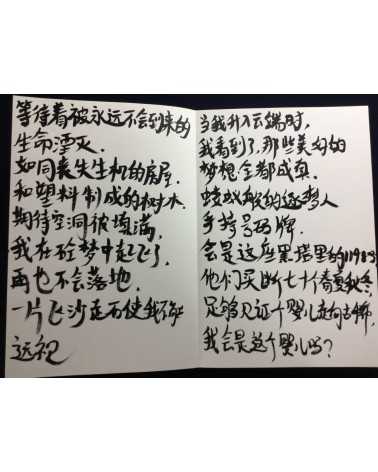 等待着被永远不会到来的
生命湮灭.
如同丧失生机的房屋.
和塑料制成的树木.
期待空洞被填满.
我在砼梦中起飞了.
再也不会落地.
一片飞沙走石使我不能
远视
当我升入云端时,
我看到了.那些美好的
梦想全都成真.
蛟蛾般的逐梦人
手持号码牌.
会是这座黑塔里的11983
他们买断七十个春夏秋冬.
足够见证个婴儿走向古稀.
我会是这个婴儿吗?